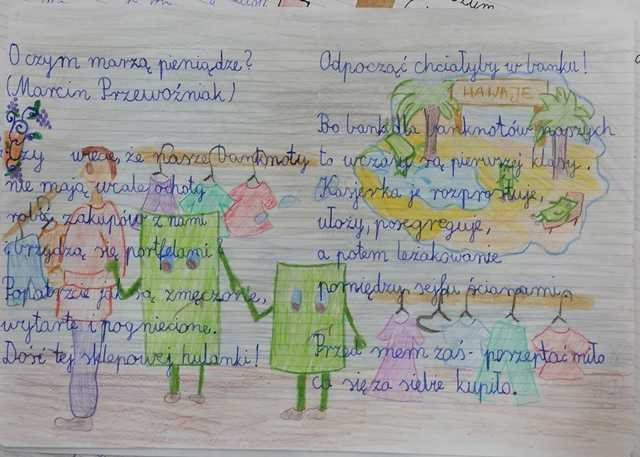 O czym marzą pieniądze?
(Marcin Przewoźniak)
Czy wiecie, że nasze banknoty
nie mają wcale ochoty
robić zakupów z nami
i brzydzą się portfelami?
Popatrzcie jak są zmęczone,
wytarte i pogniecione.
Dość tej sklepowej hulanki!
Odpocząć chciałyby w banku!
HAWAJE
Bo bank dla banknotów naszych
to wczasy są pierwszej klasy.
Kasjerka je rozprostuje,
ułoży, posegreguje,
a potem leżakowanie
pomiędzy sejfu ścianami,
Przed snem zaś - poszeptać miło
co się za siebie kupiło.